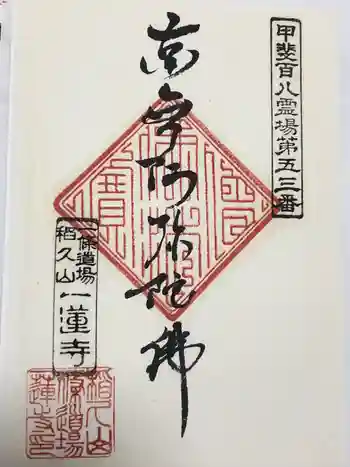 甲斐百八霊場第五三番
南無阿弥陀佛
一條道場
稲久山一蓮寺
稲久山
一條道場
一蓮寺印